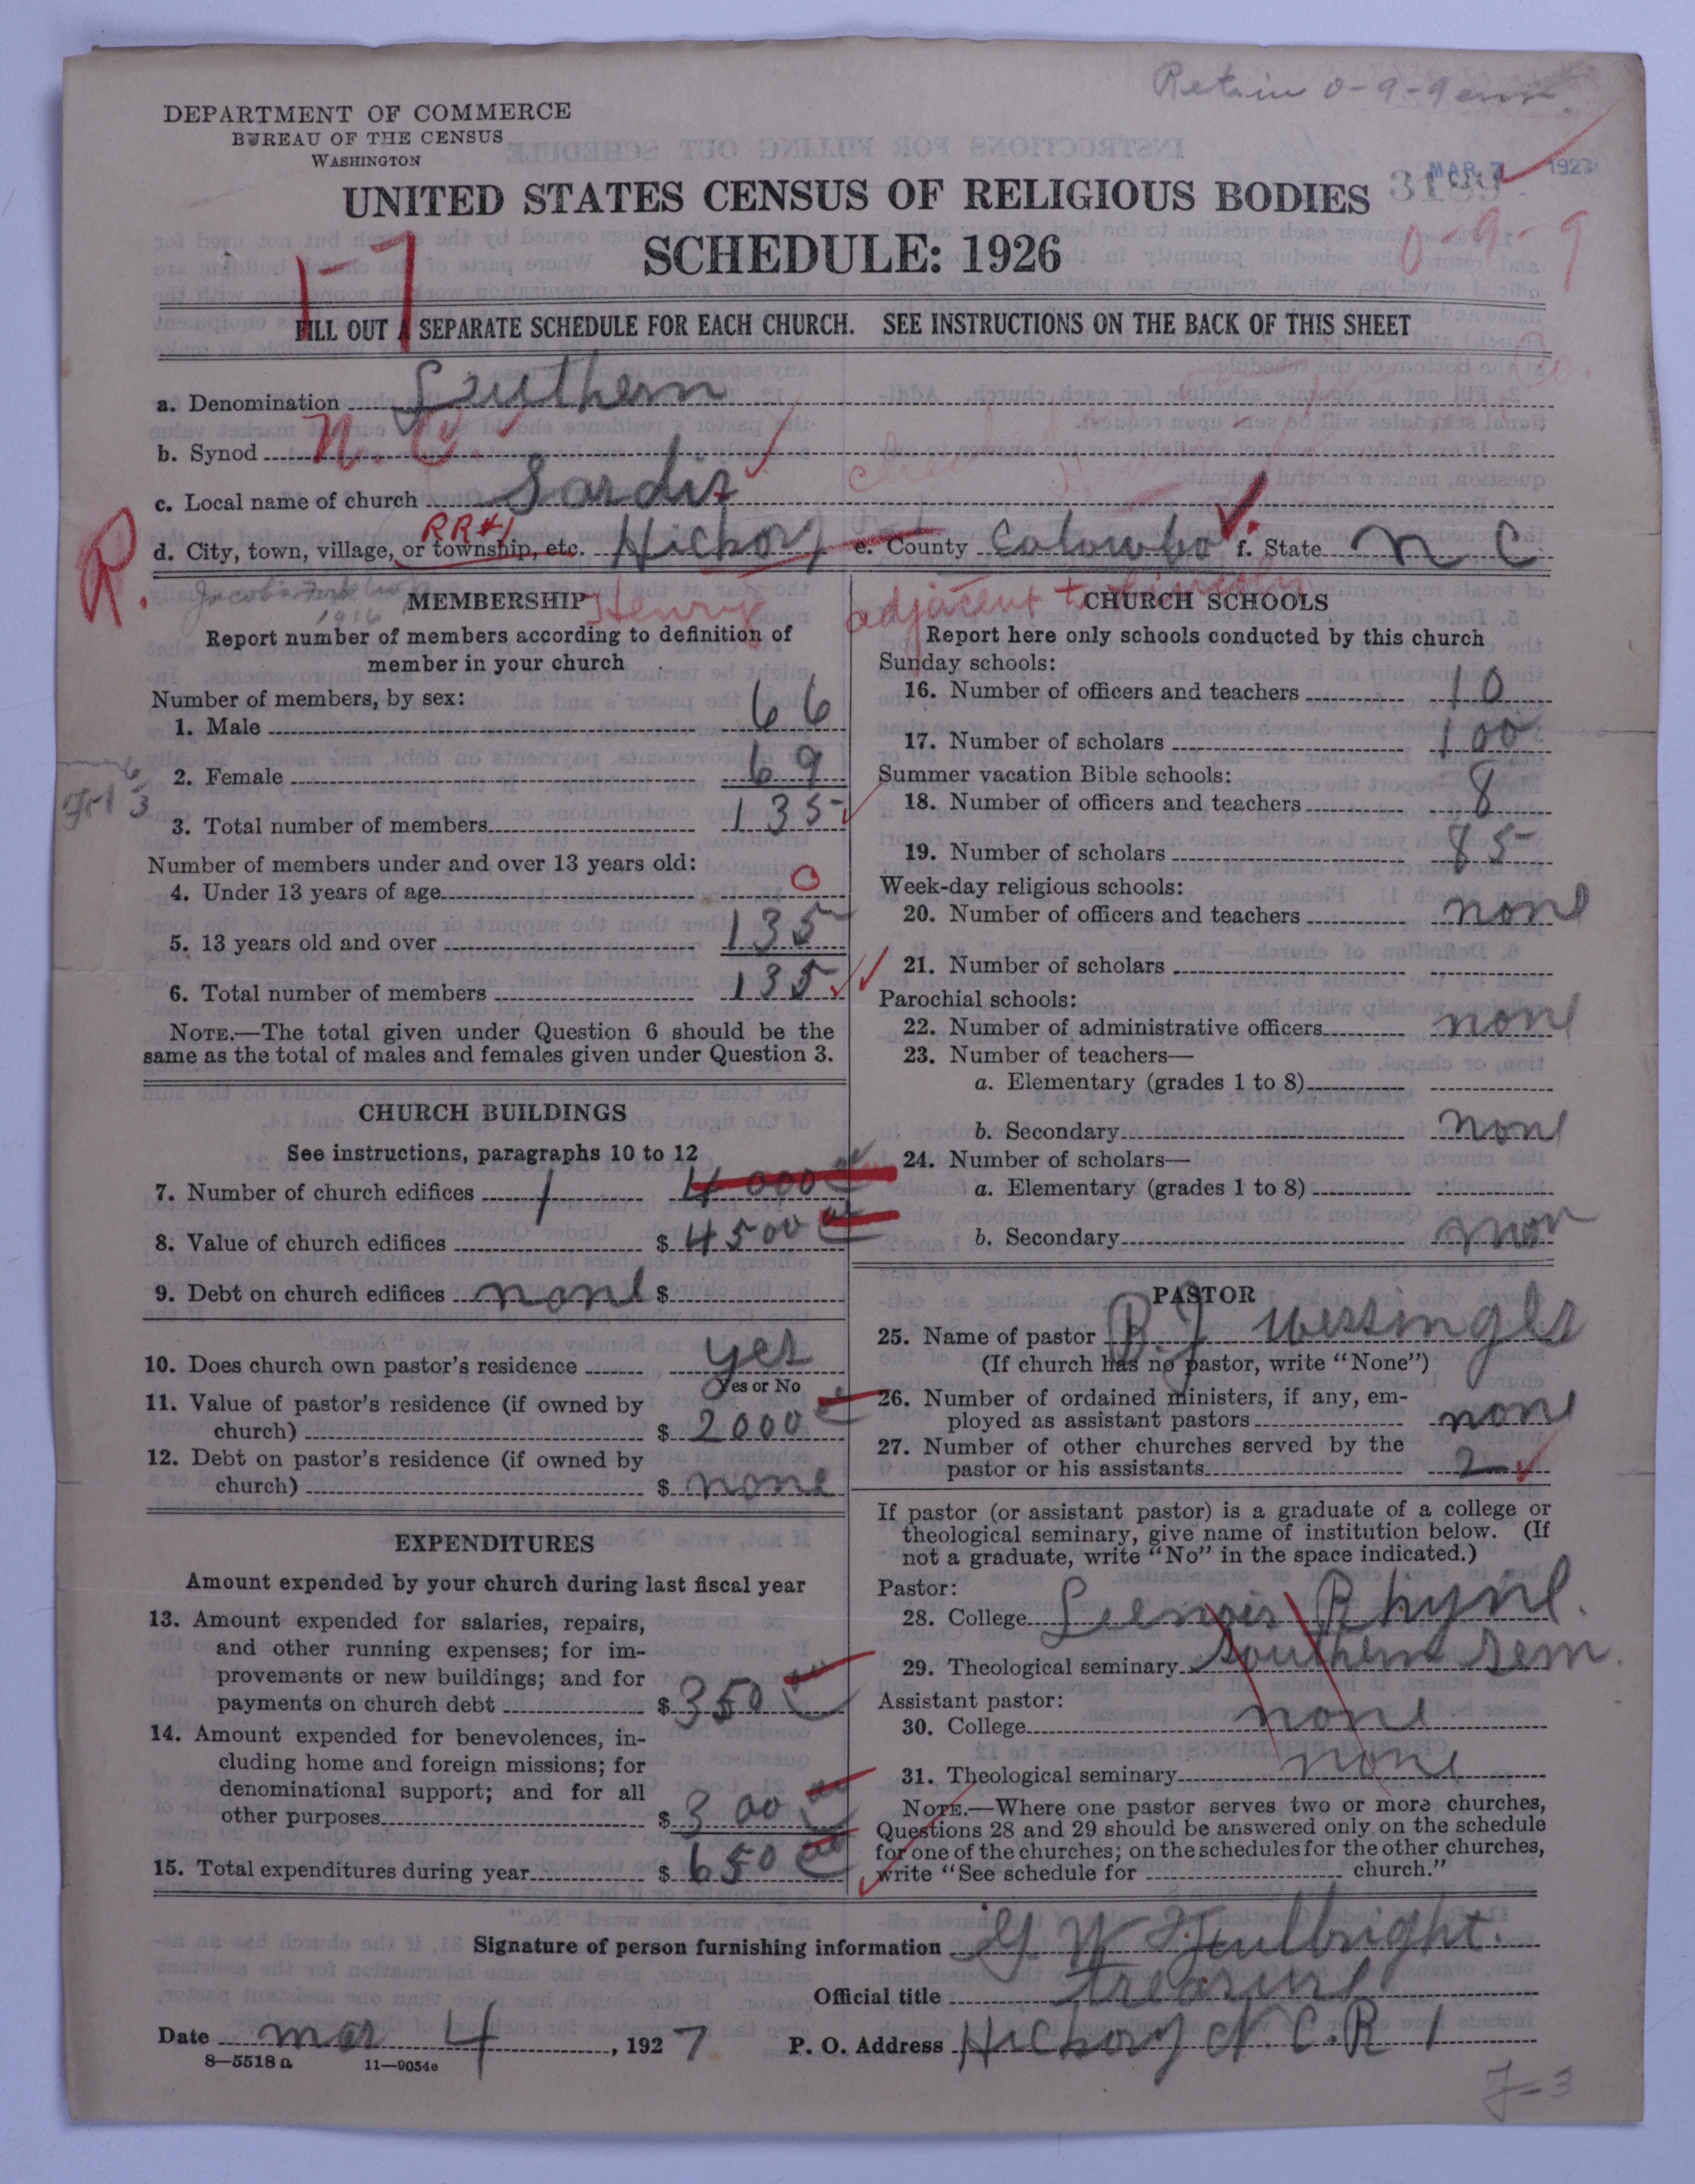 Retain 0-9-9
DEPARTMENT OF COMMERCE
BUREAU OF THE CENSUS
WASHINGTON
MAR 7 1927
UNITED STATES CENSUS OF RELIGIOUS BODIES
SCHEDULE: 1926
0-9-9
1-7
FILL OUT A SEPARATE SCHEDULE FOR EACH CHURCH. SEE INSTRUCTIONS ON THE BACK OF THIS SHEET
a. Denomination Luthern
b. Synod N. C.
c. Local name of church Sardis
RR#1
d. City, town, village, or township, etc. Hickory e. County Catawba f. State N C
R.
1916 Henry adjacent to Lincoln
MEMBERSHIP
Report number of members according to definition of
member in your church
Number of members, by sex:
1. Male 66
2. Female 69
3. Total number of members 135
Number of members under and over 13 years old:
4. Under 13 years of age 0
5. 13 years old and over 135
6. Total number of members 135
NOTE.—The total given under Question 6 should be the
same as the total of males and females given under Question 3.
CHURCH BUILDINGS
See instructions, paragraphs 10 to 12
7. Number of church edifices 1 4000 00
8. Value of church edifices $ 4500 00
9. Debt on church edifices none $
10. Does church own pastor's residence yes
Yes or No
11. Value of pastor's residence (if owned by
church) $ 2000
12. Debt on pastor's residence (if owned by
church) $ none
EXPENDITURES
Amount expended by your church during last fiscal year
13. Amount expended for salaries, repairs,
and other running expenses; for im-
provements or new buildings; and for
payments on church debt $ 350 00
14. Amount expended for benevolences, in-
cluding home and foreign missions; for
denominational support; and for all
other purposes $ 300 00
15. Total expenditures during year $ 650 00
CHURCH SCHOOLS
Report here only schools conducted by this church
Sunday schools:
16. Number of officers and teachers 10
17. Number of scholars 100
Summer vacation Bible schools:
18. Number of officers and teachers 8
19. Number of scholars 85
Week-day religious schools:
20. Number of officers and teachers none
21. Number of scholars
Parochial schools:
22. Number of administrative officers none
23. Number of teachers—
a. Elementary (grades 1 to 8)
b. Secondary none
24. Number of scholars—
a. Elementary (grades 1 to 8)
b. Secondary non
PASTOR
25. Name of pastor B. J. Wessingls
(If church has no pastor, write "None")
26. Number of ordained ministers, if any, em-
ployed as assistant pastors none
27. Number of other churches served by the
pastor or his assistants 2
If pastor (or assistant pastor) is a graduate of a college or
theological seminary, give name of institution below. (If
not a graduate, write "No" in the space indicated.)
Pastor:
28. College Leenoir Rhyne.
29. Theological seminary Southern Sem.
Assistant pastor:
30. College none
31. Theological seminary none
NOTE.—Where one pastor serves two or more churches,
Questions 28 and 29 should be answered only on the schedule
for one of the churches; on the schedules for the other churches,
write "See schedule for church."
Signature of person furnishing information G W Fullbright.
Official title
Date Mar 4, 1927 P. O. Address Hickory N. C. R 1
8—5518 a 11—9054e
J-3